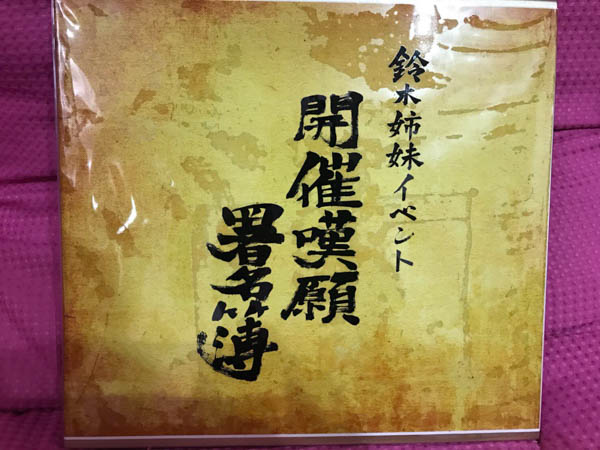 鈴木姉妹イベント
開催嘆願
署名簿